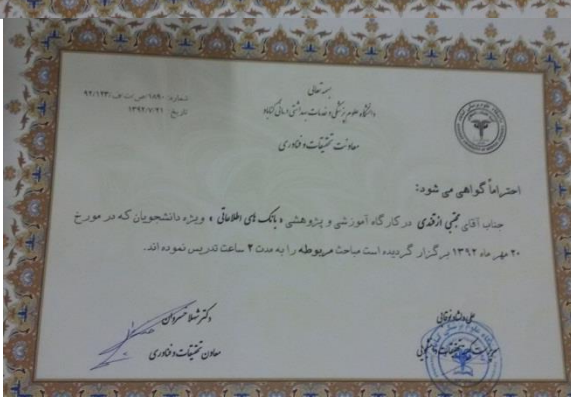 بسمه تعالی
دانشگاه علوم پزشکی و خدمات بهداشتی درمانی گناباد
معاونت تحقیقات و فناوری
تاریخ: ۱۳۹۲/۷/۲۱
احتراماً گواهی می شود:
جناب آقای مجتبی ازقندی در کارگاه آموزشی و پژوهشی « بانک های اطلاعاتی » ویژه دانشجویان که در مورخ
۲۰ مهر ماه ۱۳۹۲ برگزار گردیده است مباحث مربوطه را به مدت ۲ ساعت تدریس نموده اند.
دکتر شهلا خسروان
معاون تحقیقات و فناوری
علی دلشاد نوقابی
سرپرست کمیته تحقیقات دانشجویی